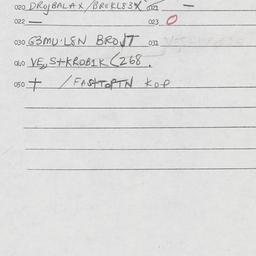 020 DROJBALAX/BROKL83X 021 —
022 — 023 O
030 G3MU·LEN BROJT 031
040 VE,S+KROB1K (268.
050 + /FASHTOPTN KOP